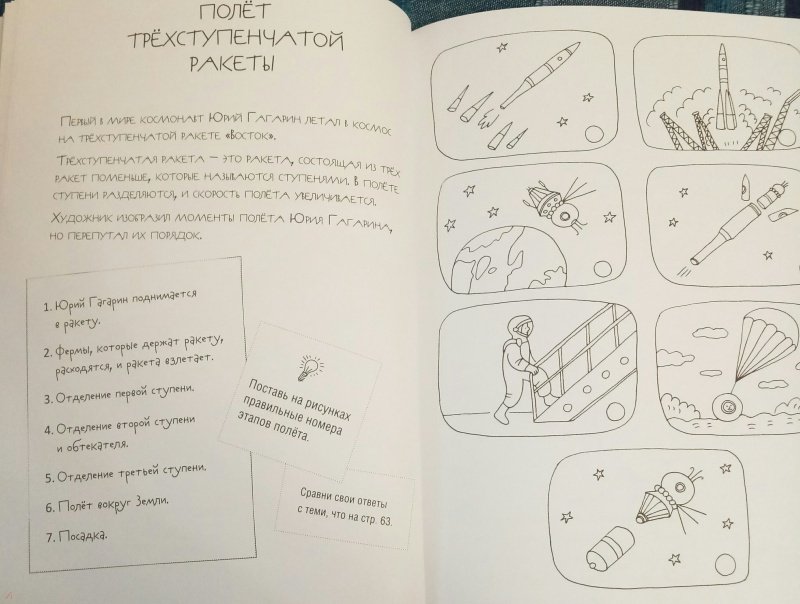 ПОЛЁТ
ТРЁХСТУПЕНЧАТОЙ
РАКЕТЫ
ПЕРВЫЙ В МИРЕ КОСМОНАВТ ЮРИЙ ГАГАРИН ЛЕТАЛ В КОСМОС
НА ТРЁХСТУПЕНЧАТОЙ РАКЕТЕ «ВОСТОК».
ТРЁХСТУПЕНЧАТАЯ РАКЕТА – ЭТО РАКЕТА, СОСТОЯЩАЯ ИЗ ТРЁХ
РАКЕТ ПОМЕНЬШЕ, КОТОРЫЕ НАЗЫВАЮТСЯ СТУПЕНЯМИ. В ПОЛЁТЕ
СТУПЕНИ РАЗДЕЛЯЮТСЯ, И СКОРОСТЬ ПОЛЁТА УВЕЛИЧИВАЕТСЯ.
ХУДОЖНИК ИЗОБРАЗИЛ МОМЕНТЫ ПОЛЁТА ЮРИЯ ГАГАРИНА,
НО ПЕРЕПУТАЛ ИХ ПОРЯДОК.
1. Юрий Гагарин поднимается
в ракету.
2. Фермы, которые держат ракету,
расходятся, и ракета взлетает.
3. Отделение первой ступени.
4. Отделение второй ступени
и обтекателя.
5. Отделение третьей ступени.
6. Полёт вокруг Земли.
7. Посадка.
Поставь на рисунках
правильные номера
этапов полёта.
Сравни свои ответы
с теми, что на стр. 63.